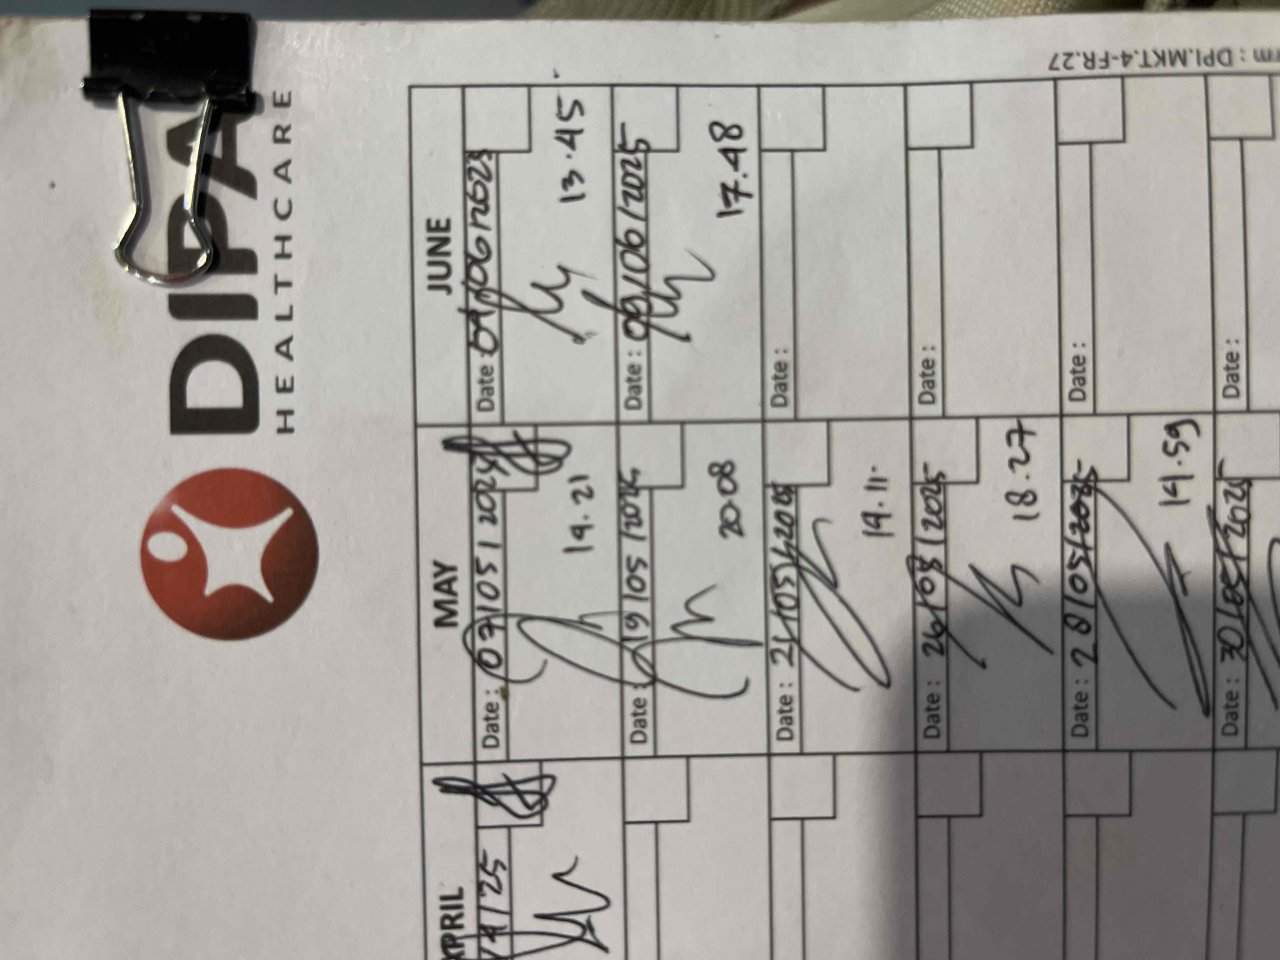 DIPA
HEALTHCARE
rm : DPI.MKT.4-FR.27
MAY
JUNE
Date : 07/05/2025
19.21
Date : 04/06/2025
13.45
Date : 19/05/2025
20.08
Date : 09/06/2025
17.48
Date : 21/05/2025
19.11.
Date :
Date : 26/05/2025
18.27
Date :
Date : 28/05/2025
19.59
Date :
Date : 30/05/2025
Date :